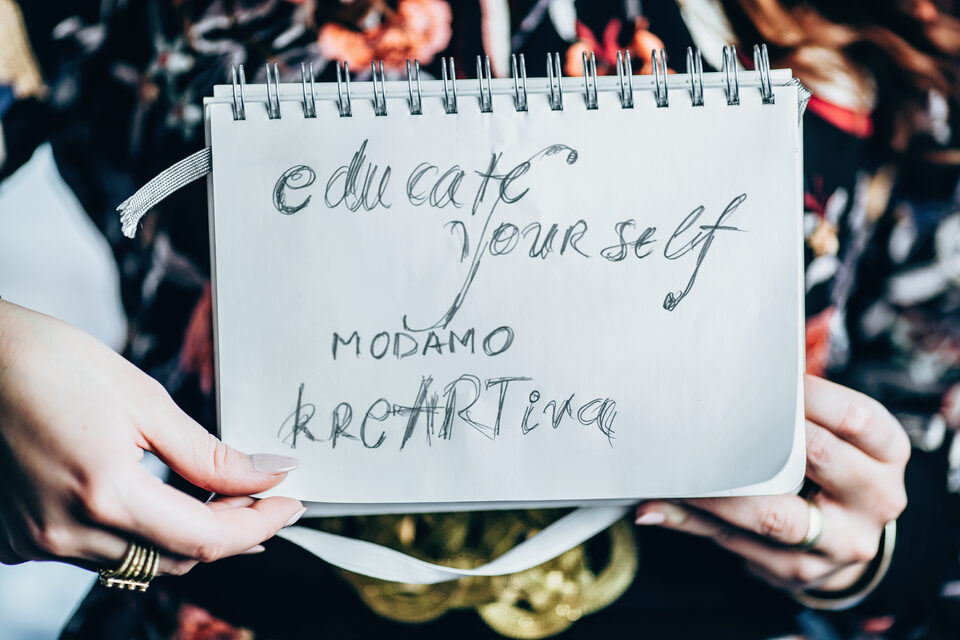 educate
yourself
MODAMO
kREARTiva